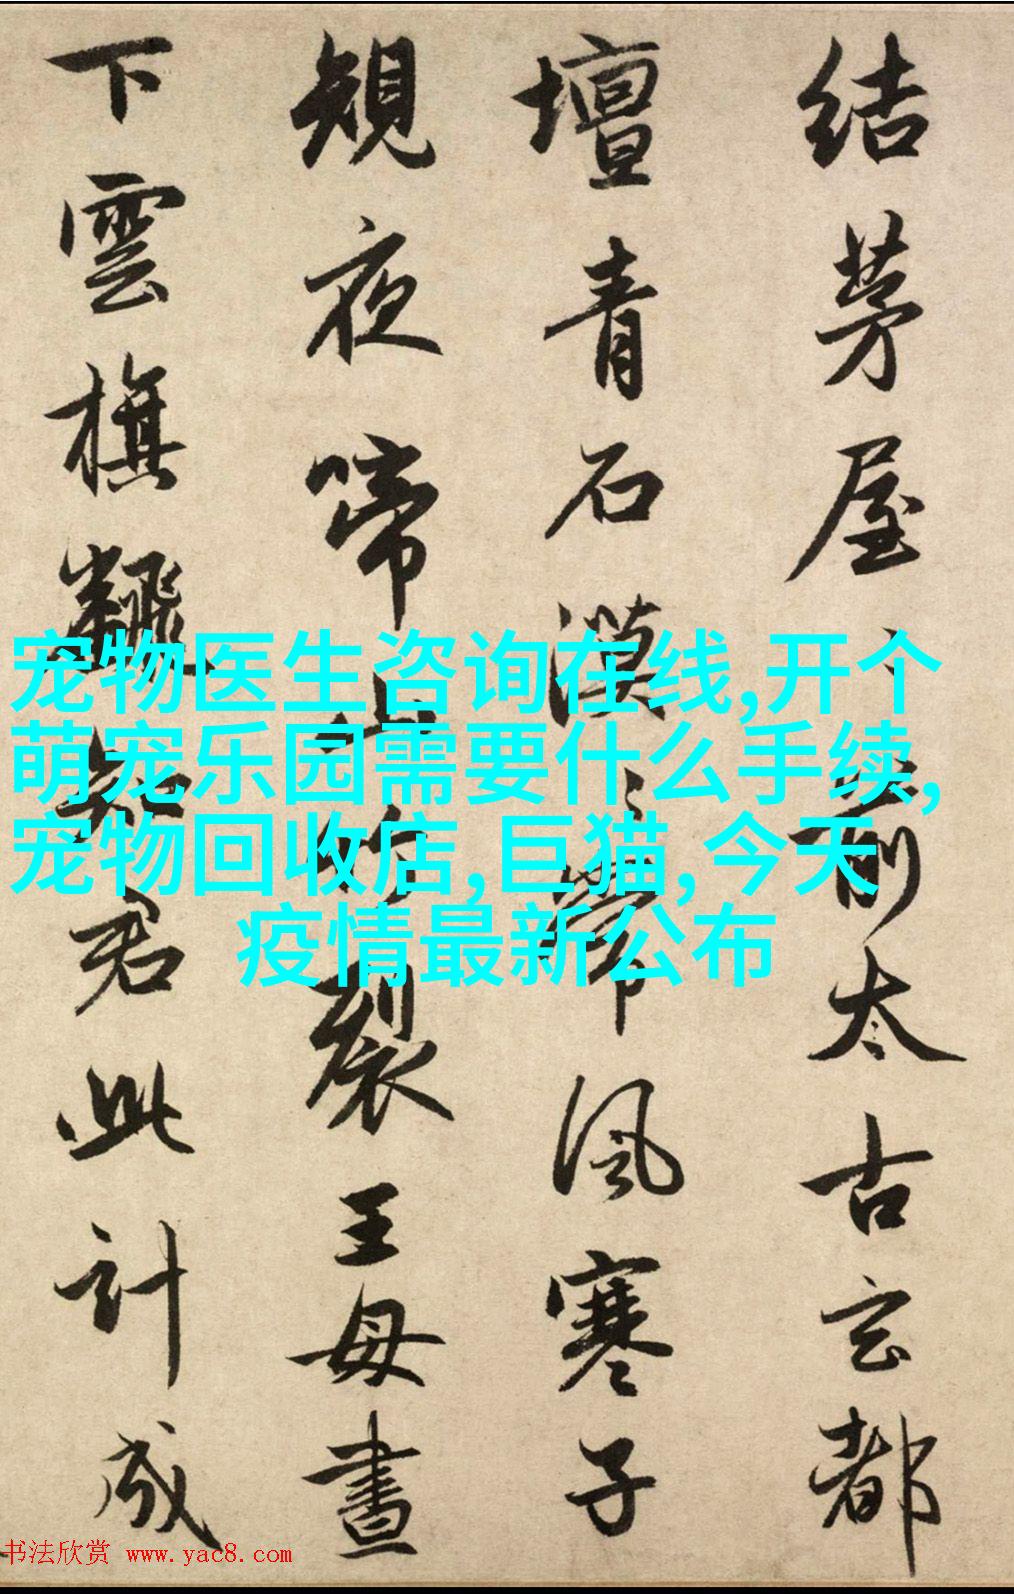 結茅屋〻前太古玄都
壇青石漠〻常風寒子
規夜啼山竹裂王母晝
下雲旗飜知君此計成
宠物医生咨询在线,开个
萌宠乐园需要什么手续,
宠物回收店,巨猫,今天
疫情最新公布
书法欣赏 www.yac8.com